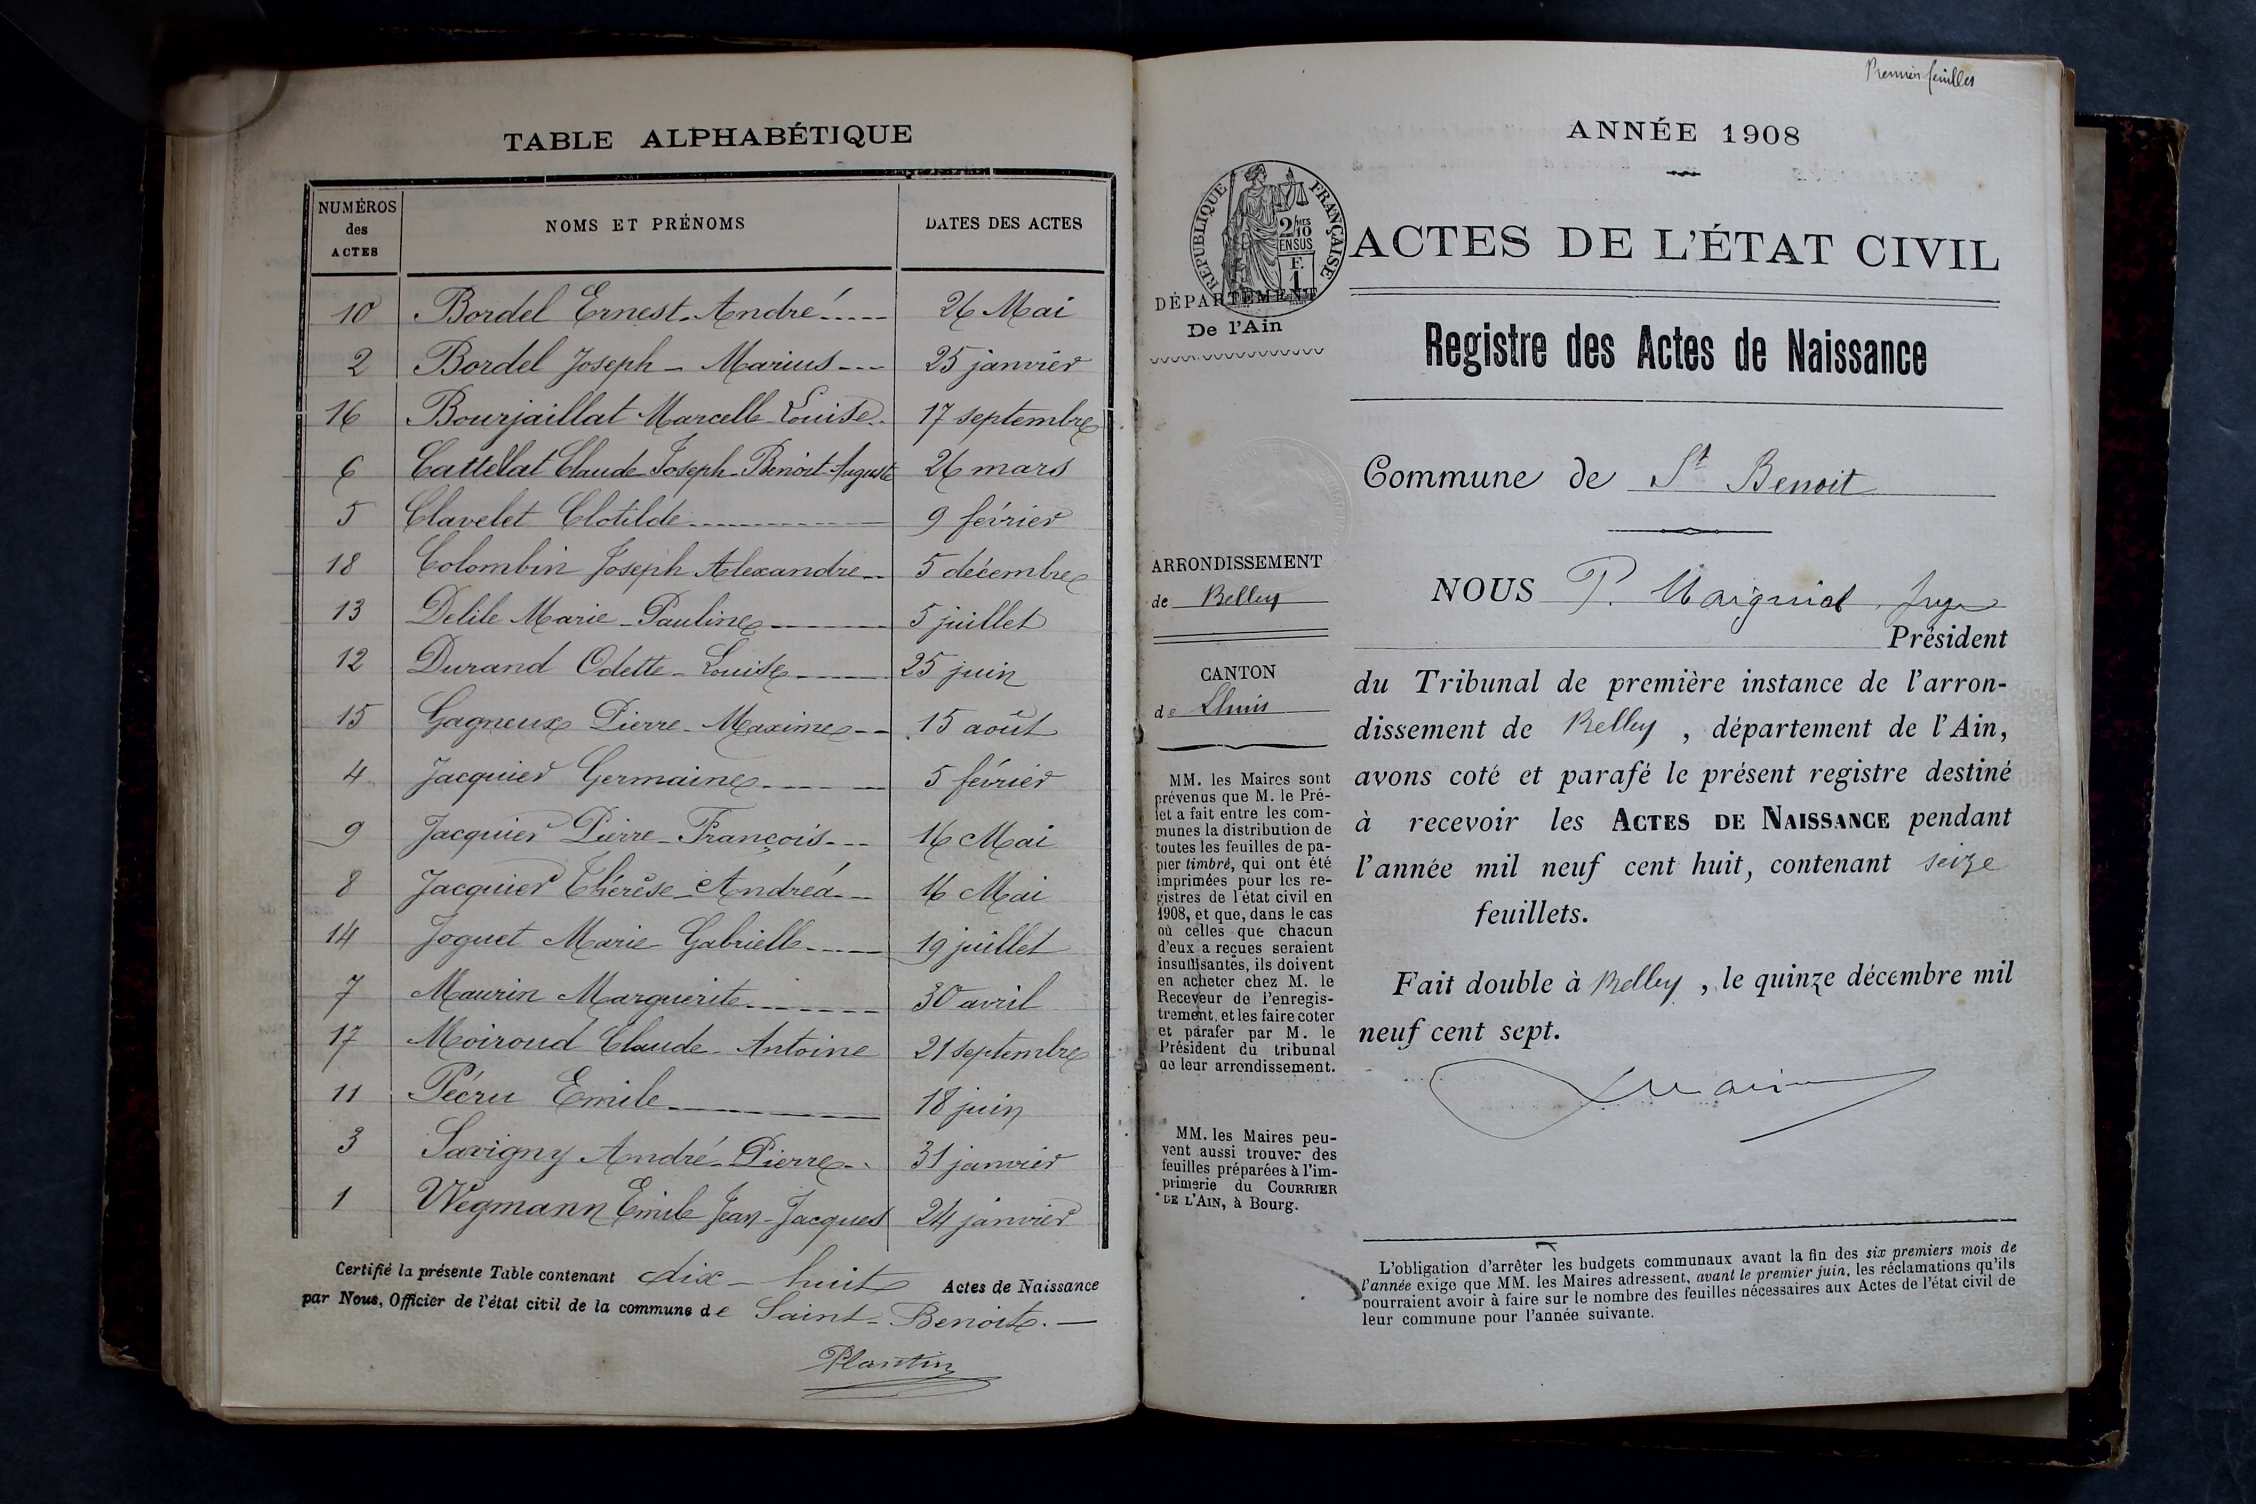 TABLE ALPHABÉTIQUE
NUMÉROS des ACTES NOMS ET PRÉNOMS DATES DES ACTES
10 Bordel Ernest-André 26 Mai
2 Bordel Joseph-Marius 25 janvier
16 Bourjaillat Marcelle-Louise 17 septembre
6 Cattellat Claude-Joseph-Benoit-Auguste 26 mars
5 Clavelet Clotilde 9 février
18 Colombin Joseph Alexandre 5 décembre
13 Delile Marie-Pauline 5 juillet
12 Durand Odette-Louise 25 juin
15 Gagneux Pierre-Maxime 15 août
4 Jacquier Germaine 5 février
9 Jacquier Pierre-François 16 Mai
8 Jacquier Thérèse-Andréa 16 Mai
14 Joguet Marie-Gabrielle 19 juillet
7 Maurin Marguerite 30 avril
17 Moiroud Claude-Antoine 21 septembre
11 Pécru Emile 18 juin
3 Savigny André-Pierre 31 janvier
1 Wegmann Emile Jean-Jacques 24 janvier
Certifié la présente Table contenant dix-huit Actes de Naissance
par Nous, Officier de l'état civil de la commune de Saint-Benoit.
Plantin
Premier feuillet
ANNÉE 1908
RÉPUBLIQUE FRANÇAISE
2/10 EN SUS
F. 1
DÉPARTEMENT
De l'Ain
ACTES DE L'ÉTAT CIVIL
Registre des Actes de Naissance
Commune de St Benoit
ARRONDISSEMENT
de Belley
CANTON
de Lhuis
MM. les Maires sont
prévenus que M. le Pré-
fet a fait entre les com-
munes la distribution de
toutes les feuilles de pa-
pier timbré, qui ont été
imprimées pour les re-
gistres de l'état civil en
1908, et que, dans le cas
où celles que chacun
d'eux a reçues seraient
insuffisantes, ils doivent
en acheter chez M. le
Receveur de l'enregis-
trement, et les faire coter
et parafer par M. le
Président du tribunal
de leur arrondissement.
MM. les Maires peu-
vent aussi trouver des
feuilles préparées à l'im-
primerie du COURRIER
DE L'AIN, à Bourg.
NOUS P. juge
Président
du Tribunal de première instance de l'arron-
dissement de Belley, département de l'Ain,
avons coté et parafé le présent registre destiné
à recevoir les ACTES DE NAISSANCE pendant
l'année mil neuf cent huit, contenant seize
feuillets.
Fait double à Belley, le quinze décembre mil
neuf cent sept.
L'obligation d'arrêter les budgets communaux avant la fin des six premiers mois de
l'année exige que MM. les Maires adressent, avant le premier juin, les réclamations qu'ils
pourraient avoir à faire sur le nombre des feuilles nécessaires aux Actes de l'état civil de
leur commune pour l'année suivante.